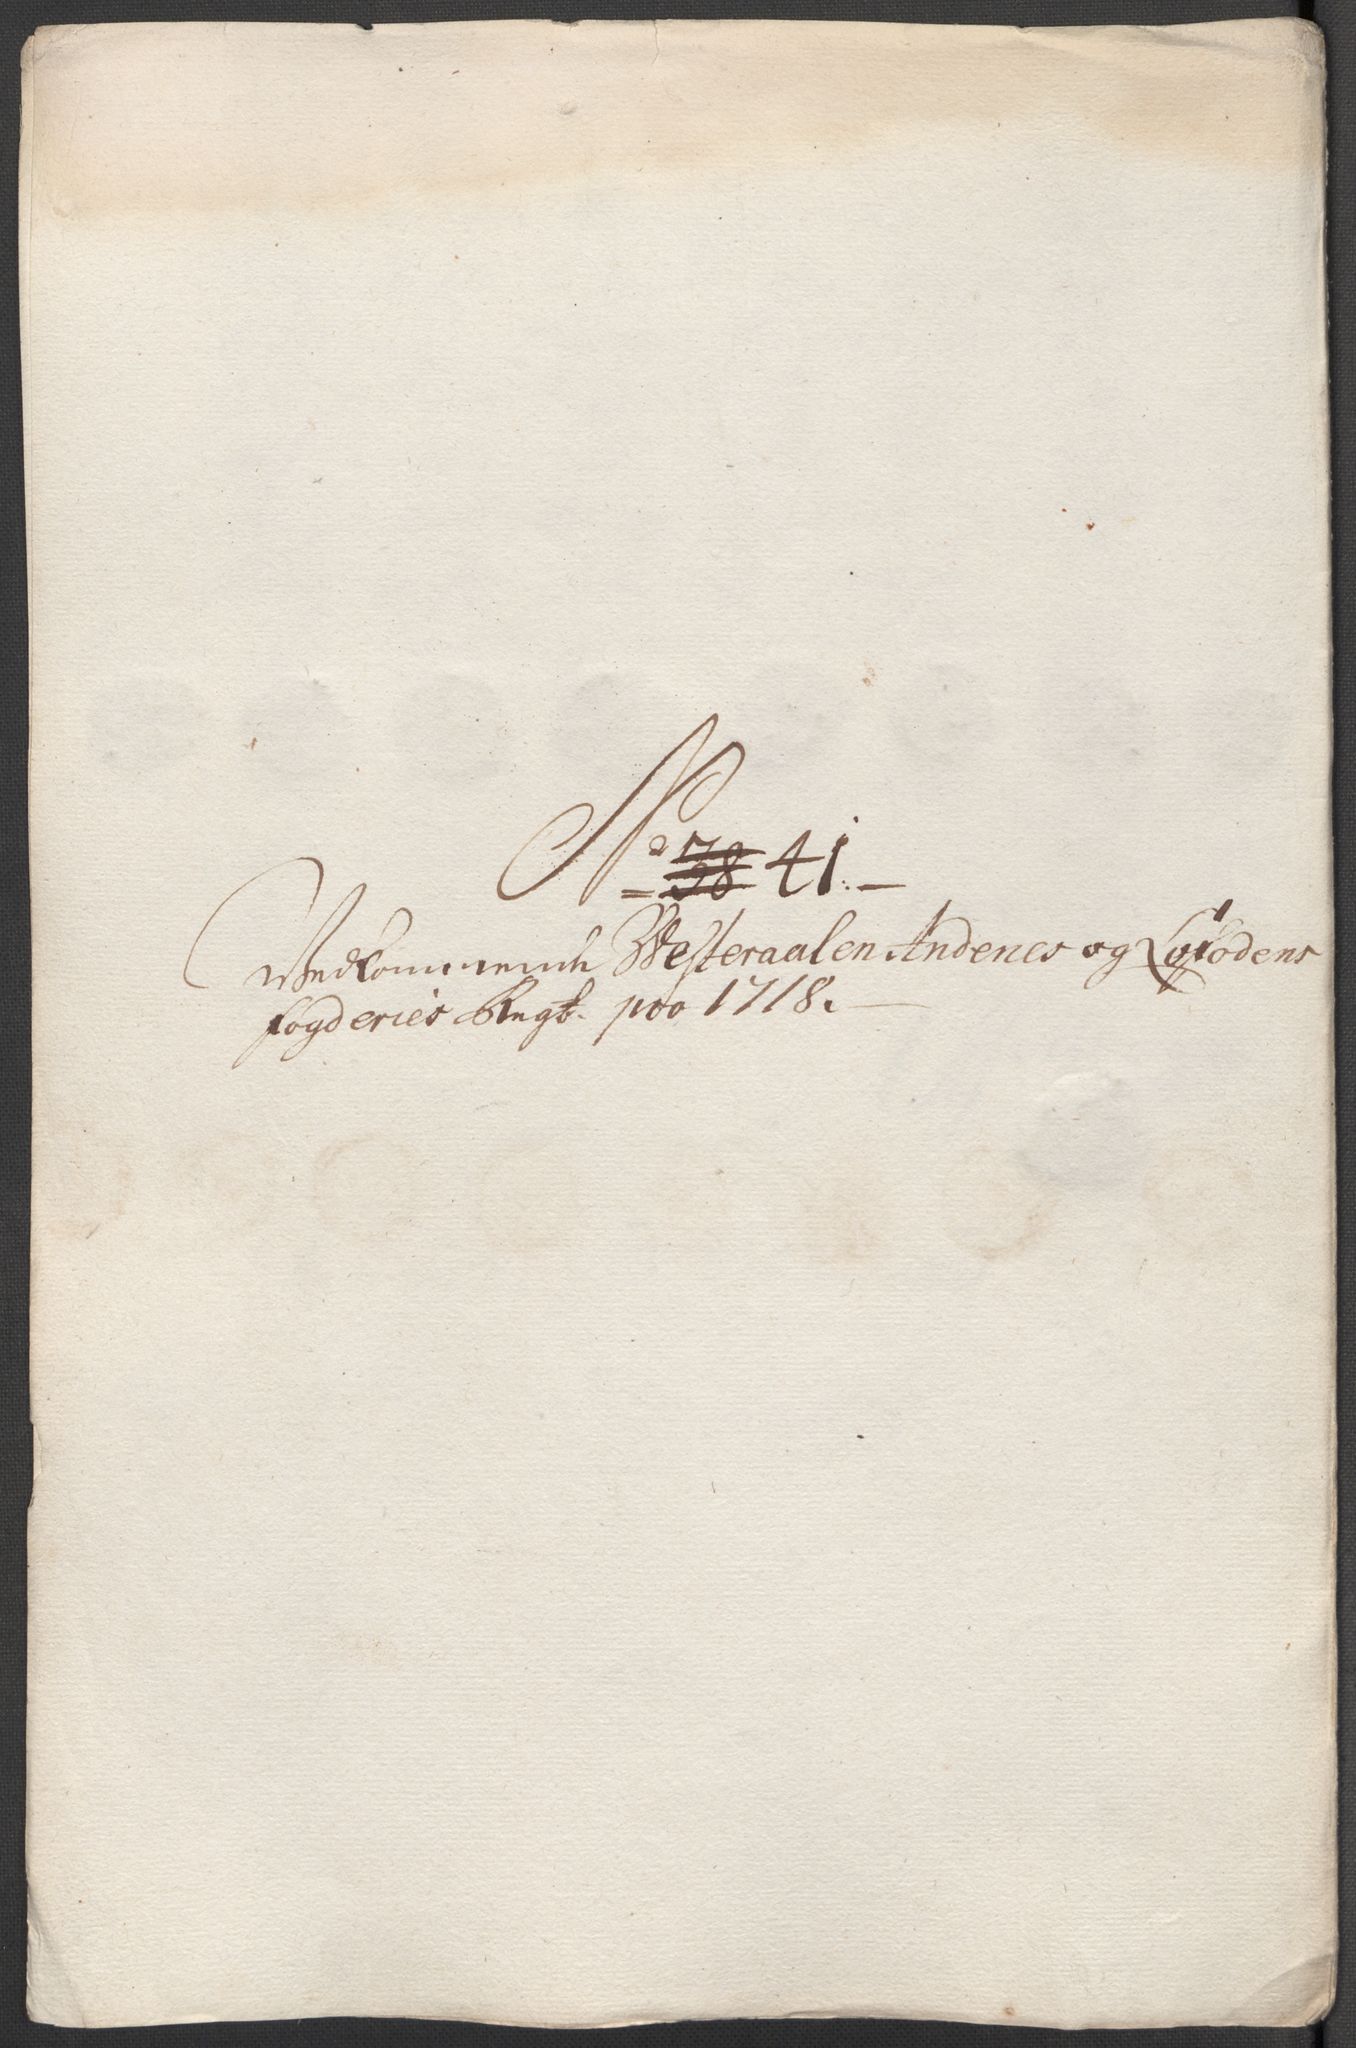 No 41.
Vedkommende Westeraalen Andenes og Lofodens
fogderies Regsk. pro 1718.